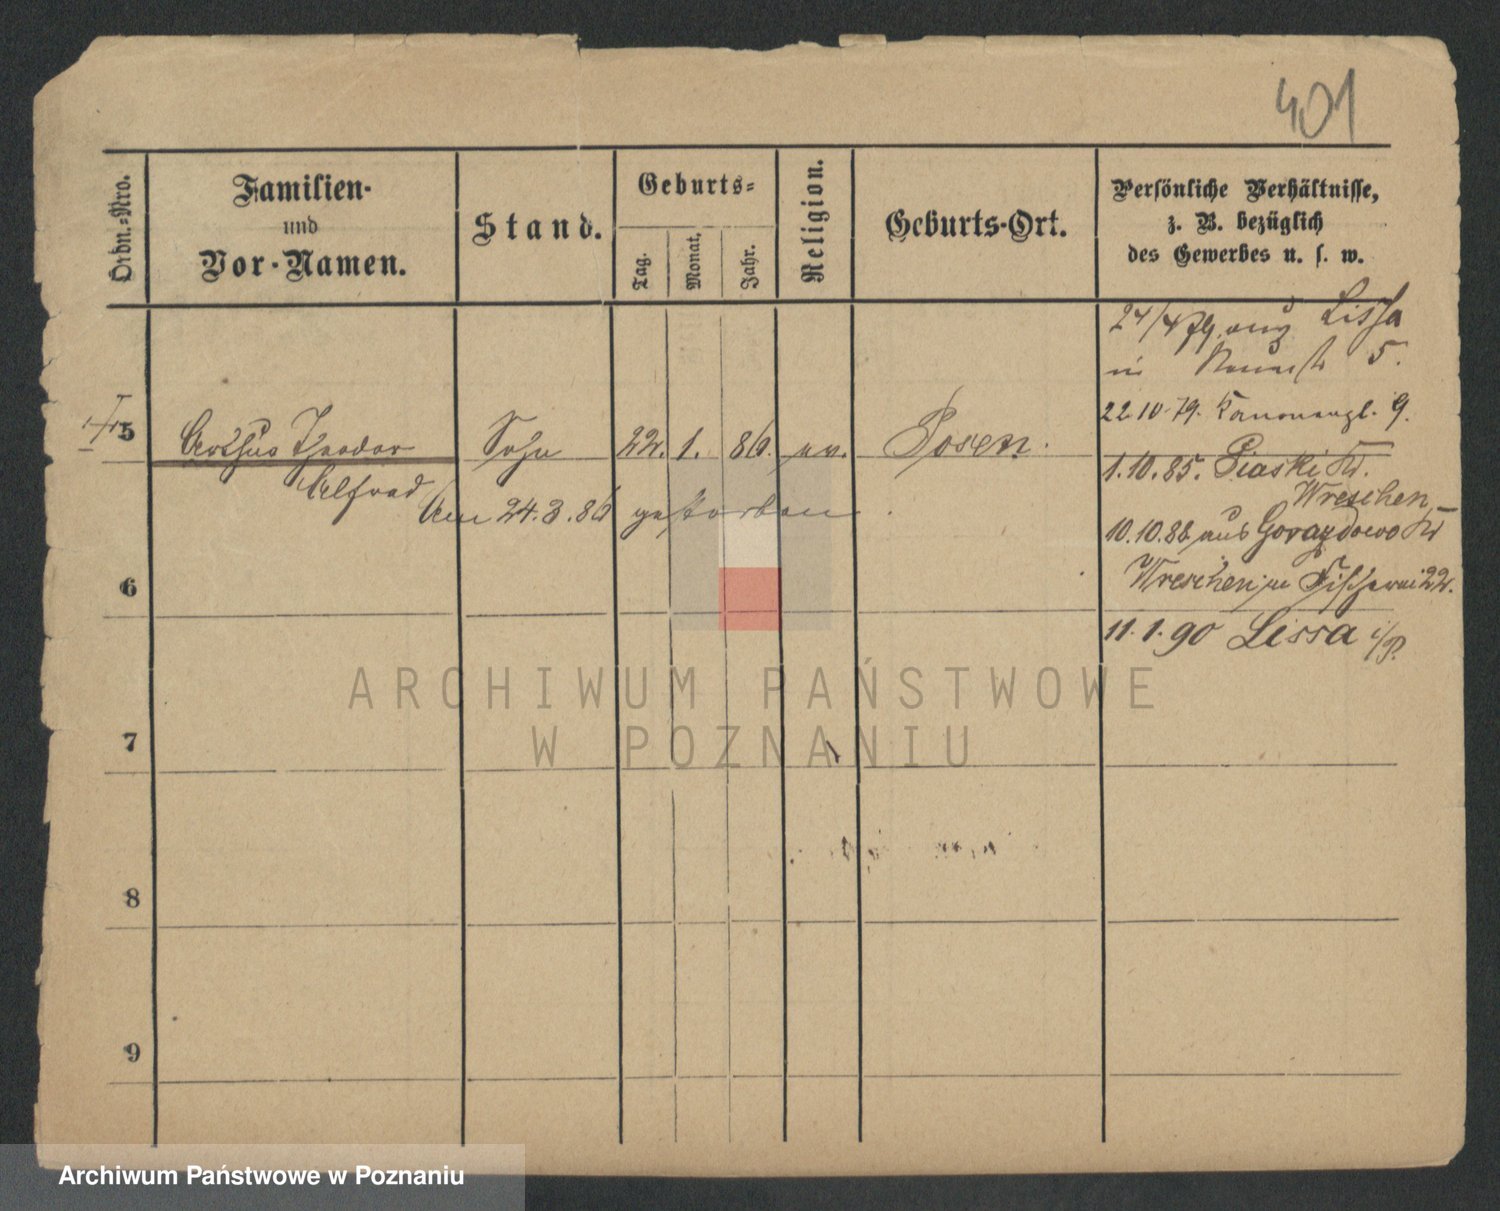 401
Ordn.-Nro.
Familien-
und
Vor-Namen.
Stand.
Geburts-
Tag.
Monat.
Jahr.
Religion.
Geburts-Ort.
Persönliche Verhältnisse,
z. B. bezüglich
des Gewerbes u. s. w.
24/4 79. aus Lissa
in 5.
22.10.79. Kanonenpl. 9.
5 Arthur Theodor Sohn 22. 1. 86. ev. Posen.
Alfred
Am 24.3.86 gestorben.
1.10.85. Piaski Kr.
Wreschen
10.10.88 aus Gorazdowo Kr
Wreschen in Fischerei 22.
11.1.90 Lissa i/P.
6
7
8
9
ARCHIWUM PAŃSTWOWE
W POZNANIU
Archiwum Państwowe w Poznaniu